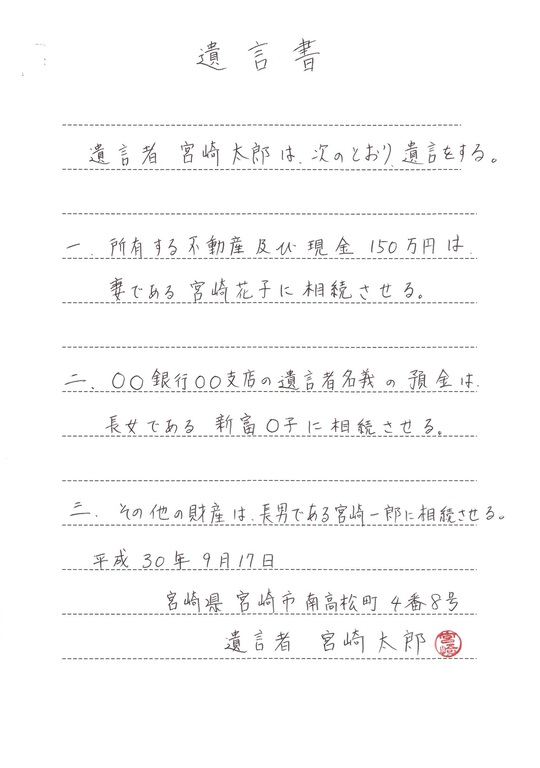 遺言書
遺言者 宮崎太郎は、次のとおり、遺言をする。
一、所有する不動産及び現金150万円は、
妻である宮崎花子に相続させる。
二、〇〇銀行〇〇支店の遺言者名義の預金は、
長女である 新富〇子に相続させる。
三、その他の財産は、長男である宮崎一郎に相続させる。
平成30年9月17日
宮崎県宮崎市南高松町4番8号
遺言者 宮崎太郎 宮崎